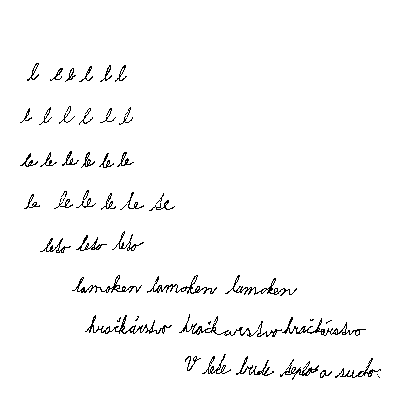 l l l l l l
l l l l l l
le le le le le le
le le le le le se
leto leto leto
lamoken lamoken lamoken
hračkárstvo hračkarstvo hračkárstvo
V lete bude teplo a sucho.